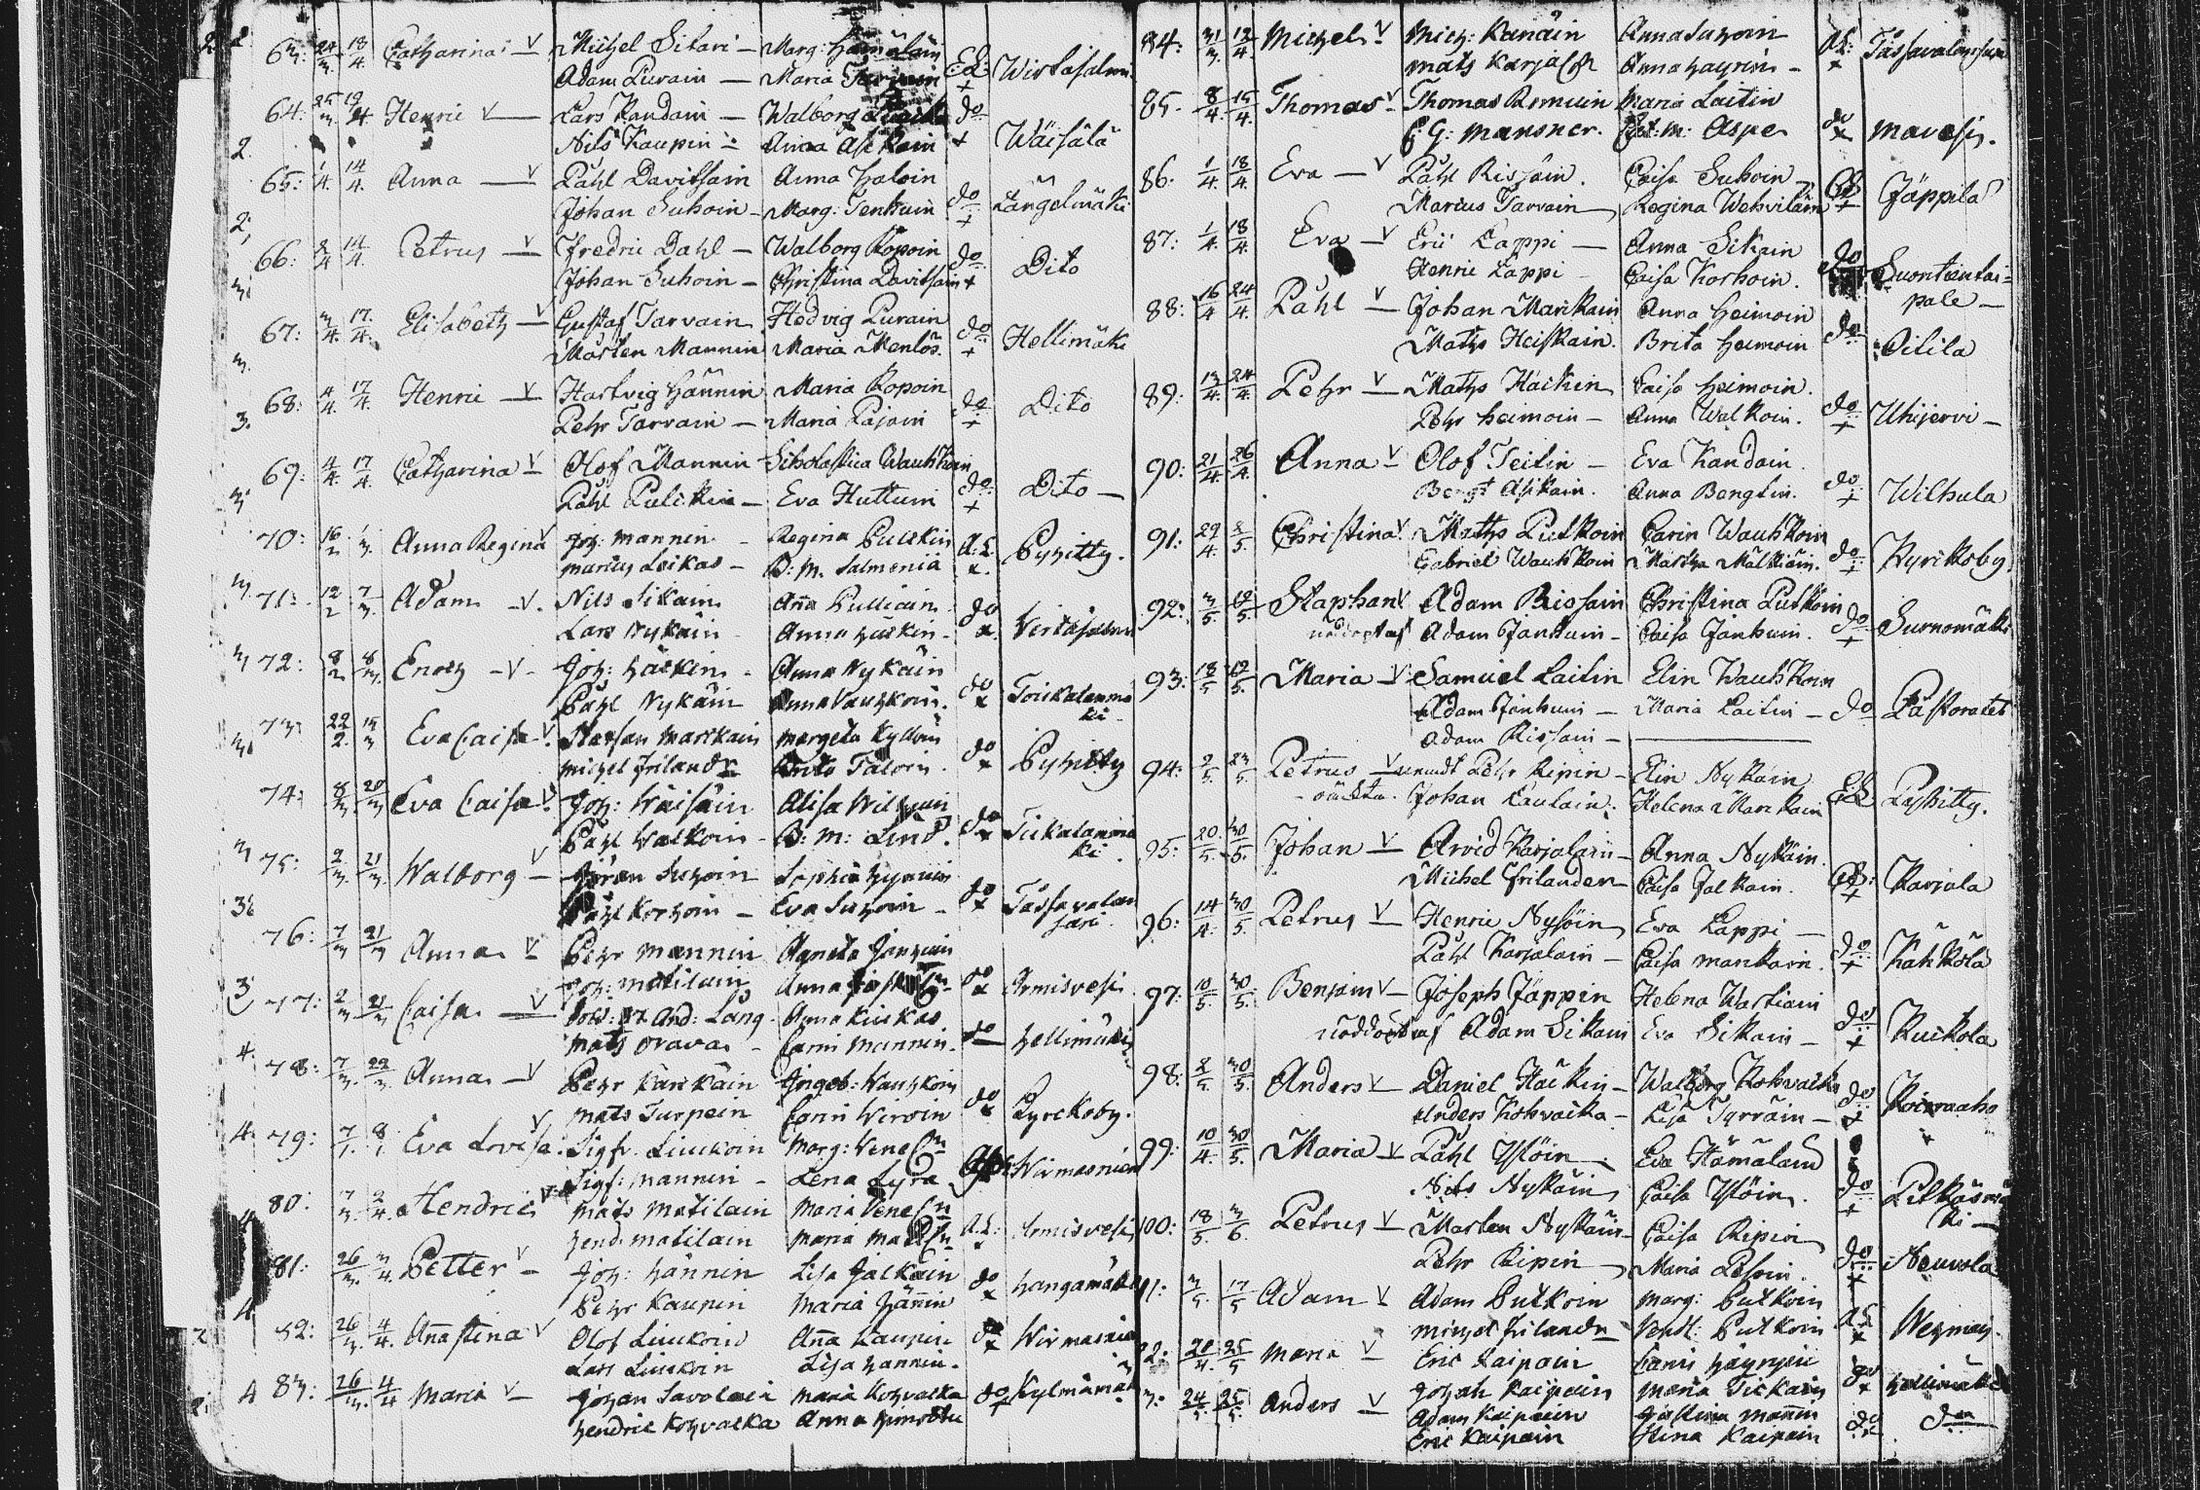 63: 24/3. 18/4 Catharina v Michel Sitari Marg: Hämäläin
Adam Purain Maria EL Wirtasalmi
64: 25/3. 19/4 Henric v Lars Kandain Walborg do
Nils Kaupin Anna Asikain Wäisälä
65: 1/4. 14/4. Anna v Påhl Davitsain Anna Haloin
Johan Suhoin Marg: Tenhuin do Längelmäki
66: 2/4 14/4. Petrus v Fredric Dahl Walborg Ropoin do
Johan Suhoin Christina Davitsain Dito
67: 3/4. 17/4. Elisabeth v Gustaf Tarvain Hedvig Purain do
Mårten Mannin Maria Menlös Hellimäki
68: 4/4. 17/4. Henric v Hartvig Hännin Maria Ropoin
Pehr Tarvain Maria Pajain do Dito
69: 4/4. 17/4. Catharina v Olof Mannin Scholastica Wauhkoin
Påhl Pulikin Eva Huttuin do Dito
70: 16/2 1/3. Anna Regina v Joh: Mannin Regina Pulikin A.L.
Marcus Leikas B: M. Salmenia Pyhitty.
71: 12/2 7/3. Adam v. Nils Sikain Anna Pulliain do
Lars Nykäin Anna Häikin Virtasalmi
72: 8/2 8/3. Enoch v Joh: Häikin Anna Nykäin
Påhl Nykäin Anna Vauhkoin. do Toikalanmä
ki
73: 22/2. 14/3 Eva Caisa v. Staffan Marikain Margeta Kyllöin
Michel Frilandr Brita Taloin do Pyhitty
74: 8/3. 20/3 Eva Caisa v Joh: Wäisäin Alisa Wilhuin
Påhl Walkoin B: M: Lind. do Tiikalanmä
ki
75: 2/3. 21/3. Walborg v Jöran Suhoin Sophia Hyvöin
Påhl Korhoin Eva Suhoin do Tassavalan
sari
76: 7/3 21/3 Anna v Pehr Mannin Agneta Janhuin
Joh: Matilain Anna do Armisvesi
77: 2/3 21/3 Caisa v And: Lång Anna Kiukas
Mats Oravas Carin Mannin do Hellimäki
78: 7/3. 22/3 Anna v Pehr Karikäin Ingeb: Wauhkoin
Mats Turpein Carin Wirwin do Kyrckoby.
79: 7/1. 8/1 Eva Lovisa v Sigfr. Liukoin Marg: Vene
Sigf: Mannin Lena Lyra Wirmasniem
80: 7/3. 2/4. Hendric v Mats Matilain Maria Vene
Hend: Matilain Maria A.L. Armisvesi
81: 26/3. 3/4. Petter v Joh: Hännin Lisa Jalkain
Pehr Kaupin Maria Hännin do Hangamäki
82: 26/3. 4/4. Annastina v Olof Liukoin Anna Kaupin do
Lars Liukoin Lisa Hännin. Wirmasnie
83: 26/3. 4/4 Maria v Johan Savolain Maria Kohvacka do Kylmämä
Hendric Kohvacka Anna
84: 31/3. 12/4. Michel v Mich: Kanain Anna Suhoin A.L.
Mats Karjal Anna Häyrin Tassavalansari
85. 8/4. 15/4. Thomas v Thomas Romuin Maria Laitin
C: G: Mansner. Cat: M: Asper do Mavesi.
86. 1/4. 18/4. Eva v Påhl Rissain. Caisa Suhoin
Marcus Tarvain Regina Wehviläin Jäppilä
87: 1/4. 18/4. Eva v Eric Lappi Anna Sikain do
Henric Lappi Caisa Korhoin. Suontientai=
pale
88: 16/4 24/4. Påhl v Johan Marikain Anna Heimoin
Maths Heiskain. Brita Heimoin do Oitila
89: 13/4. 24/4. Pehr v Maths Häikin Caisa Heimoin.
Pehr Heimoin Anna Walkoin. do Uhijervi
90: 21/4. 26/4. Anna v Olof Teitin Eva Kandain.
Bengt Asikain. Anna Bengtin. do Wilhula
91: 29/4. 2/5. Christina v Maths Putkoin Carin Wauhkoin
Gabriel Wauhkoin Martha Malkiain. do Kyrckoby
92: 3/5. 12/5. Staphan v Adam Rissain Christina Putkoin
nöddoptaf Adam Janhuin Caisa Janhuin. do Surnomäki
93: 18/5 12/5. Maria v Samuel Laitin Elin Wauhkoin
Adam Janhuin Maria Laitin do Pastoratet
Adam Rissain
94: 2/5. 23/5 Petrus v Pehr Ripin Elin Nykäin
oäckta. Johan Laulain. Helena Marikain EL Pyhitty.
95: 20/5. 30/5. Johan v Arvid Karjalain Anna Nykäin.
Michel Frilander Caisa Jalkain. Karjala
96: 14/4. 30/5. Petrus v Henric Nysöin Eva Lappi
Påhl Karjalain Caisa Marikain. do Kähkölä
97: 10/5. 30/5. Benjam v Joseph Jäppin Helena Wartiain
nöddopt af Adam Sikain Eva Sikain do Ruokola
98: 2/5. 30/5. Anders v Daniel Häikin Walborg Kohvacka
Anders Kohvacka Lisa Tyrräin do Koivuaho
99: 10/4. 30/5. Maria v Påhl Ylöin Eva Hämäläin
Nils Nykäin Caisa Ylöin. do Pitkäsmä
ki
100: 18/5. 3/6. Petrus v Marten Nykäin Caisa Ripin
Pehr Ripin Maria Pesoin. do Neuvola
1: 3/5. 17/5 Adam v Adam Putkoin Marg: Putkoin
Michel Frilandr Vendl: Putkoin A.L Wehmas
2: 21/4. 25/5 Maria v Eric Kaipain Carin Häyryin
Johan Kaipain Maria Tickain do Hellimäki
3. 24/5. 25/5. Anders v Adam Kaipain Justina Mannin
Eric Kaipain Stina Kaipain do do